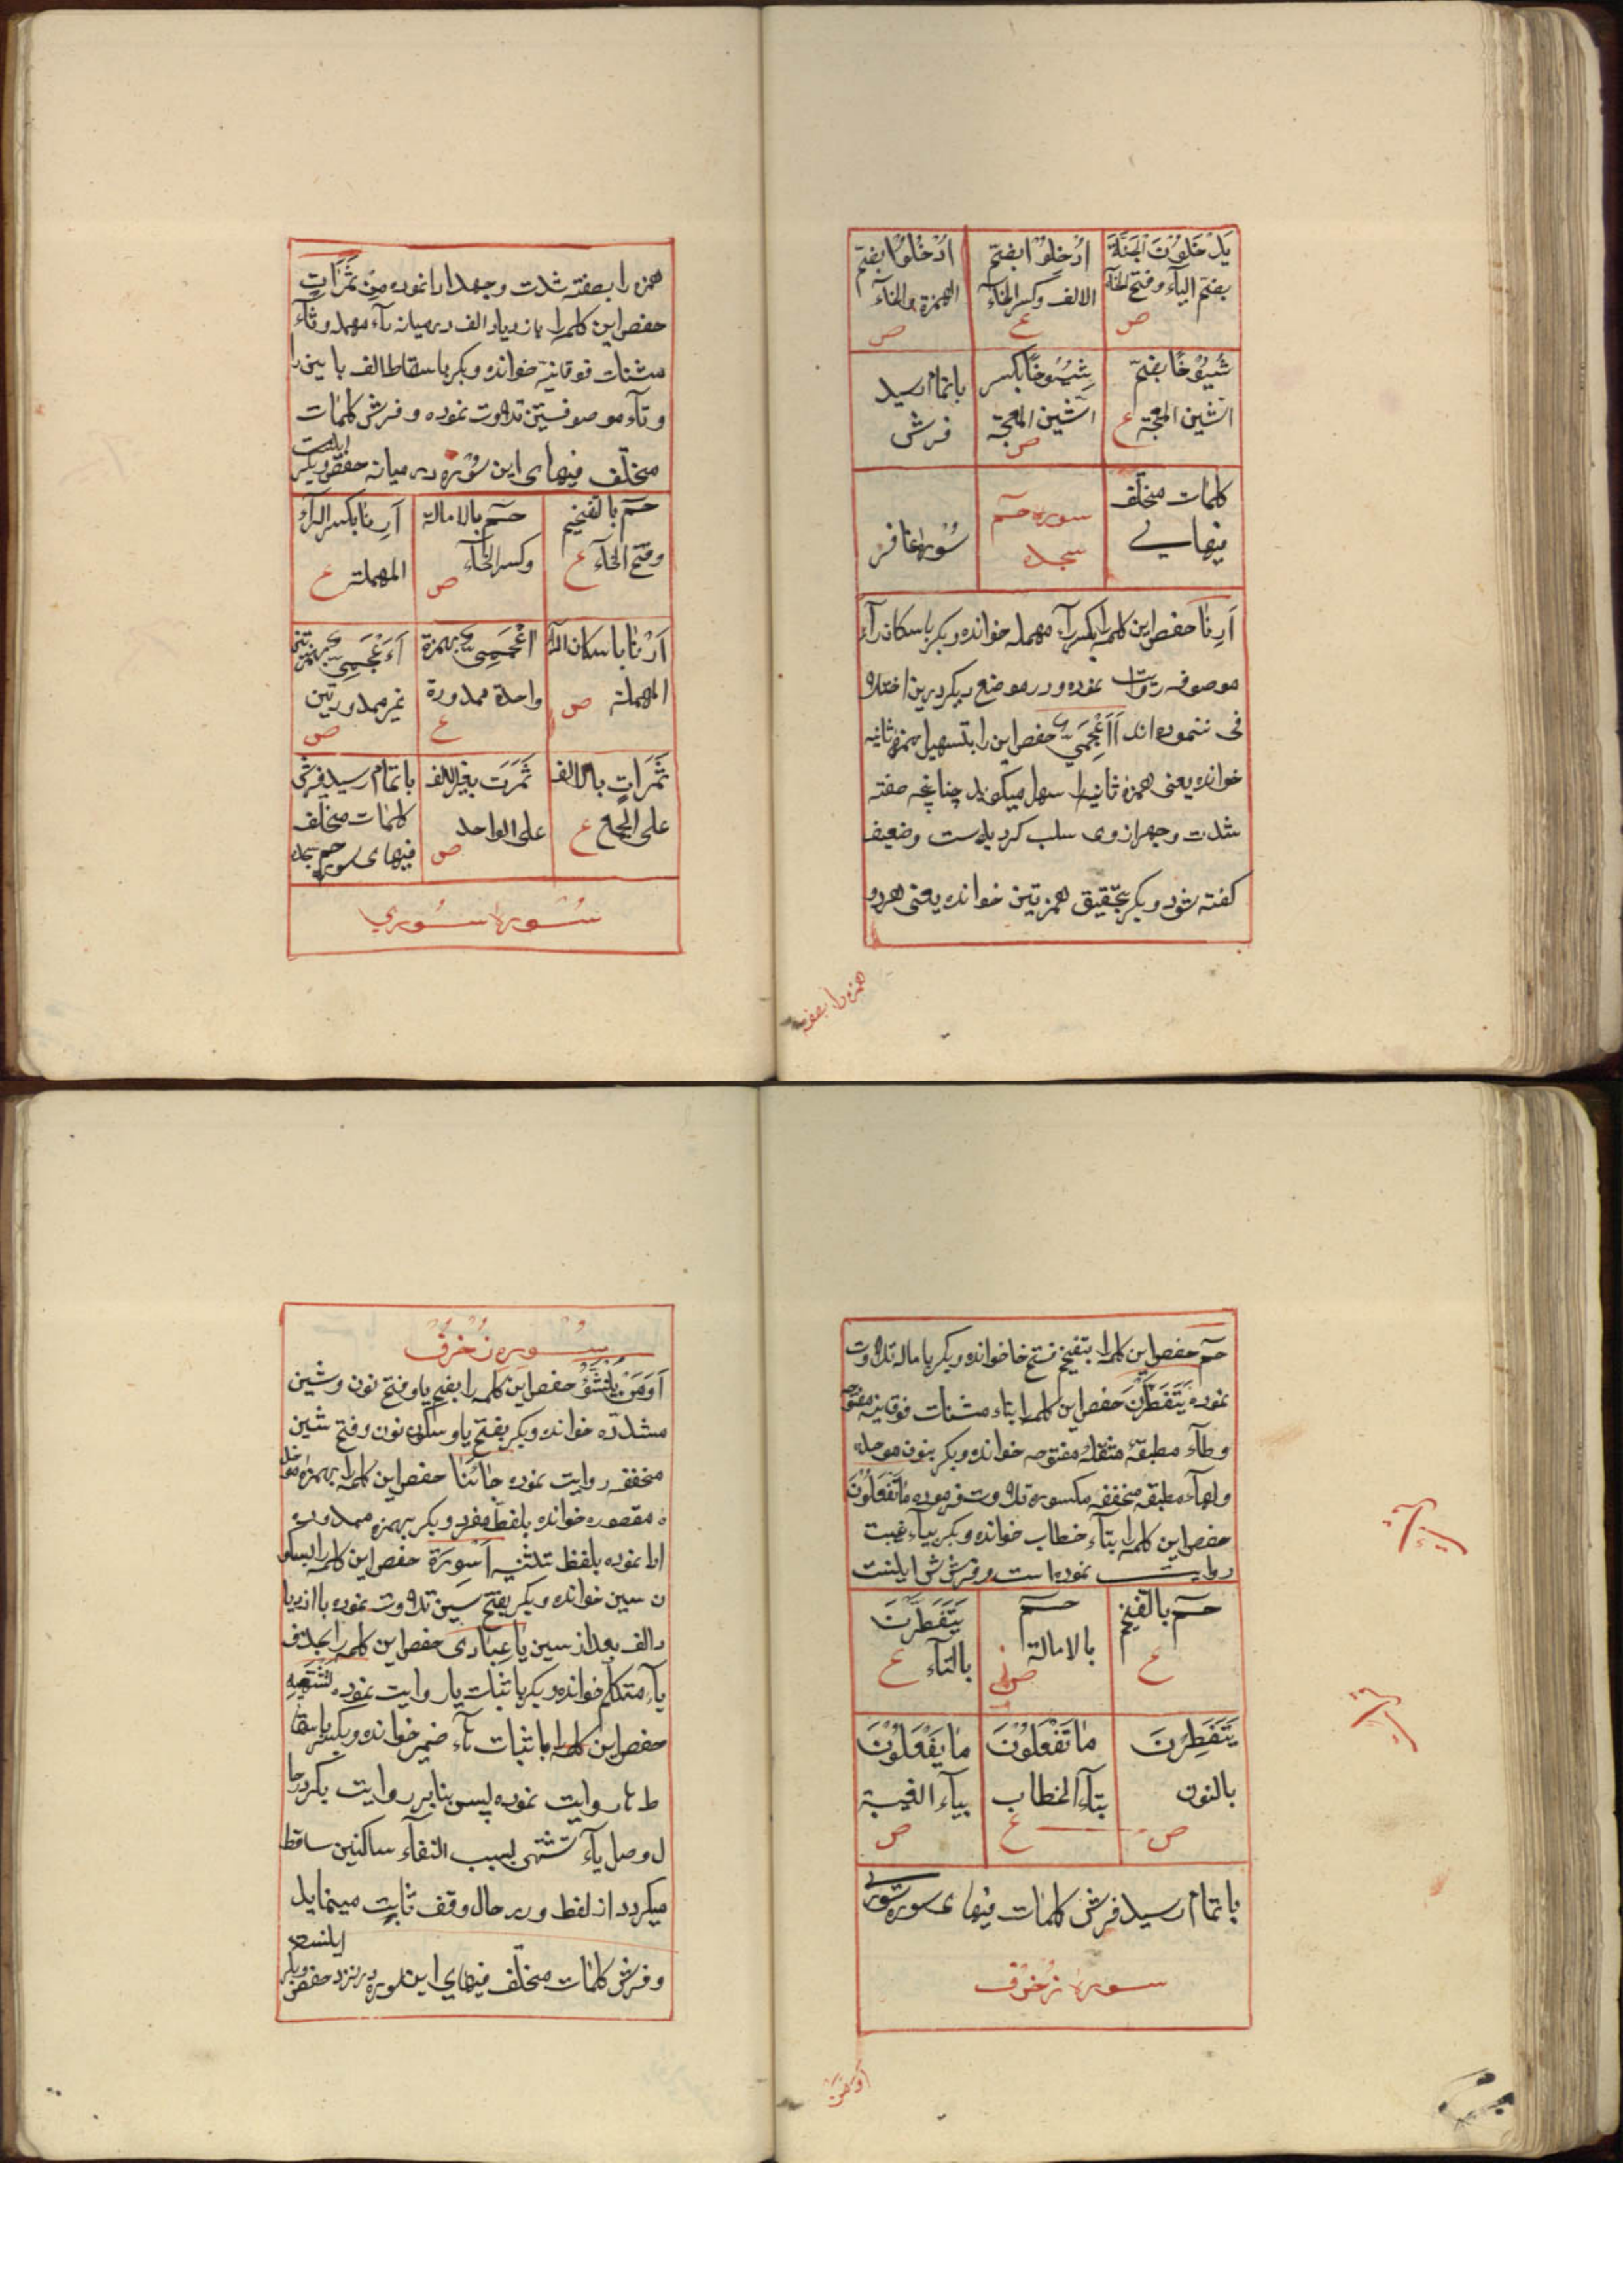 يَدْخُلُونَ الجَنَّةَ
بضم الیآء و فتح الخآء
ص
اَدْخِلُوا بفتح
الالف و کسر الخآء
ع
اُدْخُلُوا بضم
الهمزة و الخآء
ص
شُیُوخًا بضم
الشین المعجمة ع
شِیُوخًا بکسر
الشین المعجمة
ص
باتمام رسید
فرش
کلمات مختلف
فیهایی
سوره حم
سجده
سوره غافر
اَرِنَا حفص این کلمه را بکسر رآء مهمله خوانده و بکر باسکان رآء
موصوفه روایت نموده و در موضع دیگر درین اختلا
فی ننموده اند أَاَعْجَمِيٌّ حفص این را بتسهیل همزه ثانیه
خوانده یعنی همزه ثانیه را سهل میکوید چنانچه صفته
شدت و جهر از وی سلب کردیده است و ضعیف
کفته شود و بکر بتحقیق همزتین خوانده یعنی هردو
همزه را بصفته
همزه را بصفته شدت و جهد ادا نموده مِنْ ثَمَرَاتٍ
حفص این کلمه را بازدیاد الف در میانه رآء مهمله و تآء
مثنات فوقانیه خوانده و بکر باسقاط الف با بین را
و تآء موصوفتین تلاوت نموده و فرش کلمات
مختلف فیهای این سوره در میانه حفص و بکر
اینست
حم بالتفخیم
و فتح الحآء ع
حم بالامالة
و کسر الحآء ص
اَرِنَا بکسر الرآء
المهملة ع
اَرْنَا باسکان الرآء
المهملة ص
اَعْجَمِيٌّ بهمزة
واحدة ممدودة
ع
أَاَعْجَمِيٌّ بهمزتین
غیر ممدودتین
ص
ثَمَرَاتٍ بالالف
علی الجمع ع
ثَمَرَت بغیر الالف
علی الواحد ص
باتمام رسید فرش
کلمات مختلف
فیهای سوره حم سجده
سوره شوری
حم حفص این کلمه را بتفخیم فتح حا خوانده و بکر باماله تلاوت
نموده يَتَفَطَّرْنَ حفص این کلمه را بتاء مثنات فوقانیه مفتوحه
و طآء مطبقه مثقله مفتوحه خوانده و بکر بنون موحده
و طآء مطبقه مخففه مکسوره تلاوت فرموده مَا تَفْعَلُونَ
حفص این کلمه را بتآء خطاب خوانده و بکر بیآء غیبت
روایت نموده است و فرشش اینست
حم بالتفخیم
ع
حم
بالامالة
ص
يَتَفَطَّرْنَ
بالتآء ع
يَنْفَطِرْنَ
بالنون
ص
مَا تَفْعَلُونَ
بتآء الخطاب
ع
مَا يَفْعَلُونَ
بیآء الغیبة
ص
باتمام رسید فرش کلمات فیهای سوره شوری
سوره زخرف
اَوَمَنْ
سوره زخرف
اَوَمَنْ يُنَشَّؤُ حفص این کلمه را بضم یا و فتح نون و شین
مشدده خوانده و بکر بفتح یا و سکون نون و فتح شین
مخففه روایت نموده جَائَنَا حفص این کلمه را بهمزه موحد
ه مقصوره خوانده بلفظ مفرد و بکر بهمزه ممدوده
ادا نموده بلفظ تثنیه اَسْوِرَة حفص این کلمه را بسکو
ن سین خوانده و بکر بفتح سین تلاوت نموده با ازدیا
د الف بعد از سین يَا عِبَادِی حفص این کلمه را بحذف
یآء متکلم خوانده و بکر باثبات یا روایت نموده تَشْتَهِیهِ
حفص این کلمه را باثبات هآء ضمیر خوانده و بکر باسقا
ط ها روایت نموده پس بنابر روایت بکر در حا
ل وصل یآء تشتهی بسبب التقآء ساکنین ساقط
میکردد از لفظ و در حال وقف ثابت مینماید
و فرش کلمات مختلف فیهای این سوره در نزد حفص و بکر
اینست